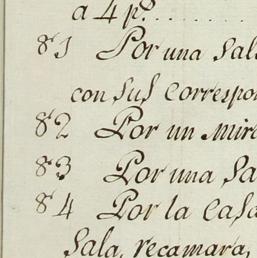 a 4 p.s ..........
81 Por una Sal
con sus correspon
82 Por un mira
83 Por una Sa
84 Por la Casa
Sala, recamara,